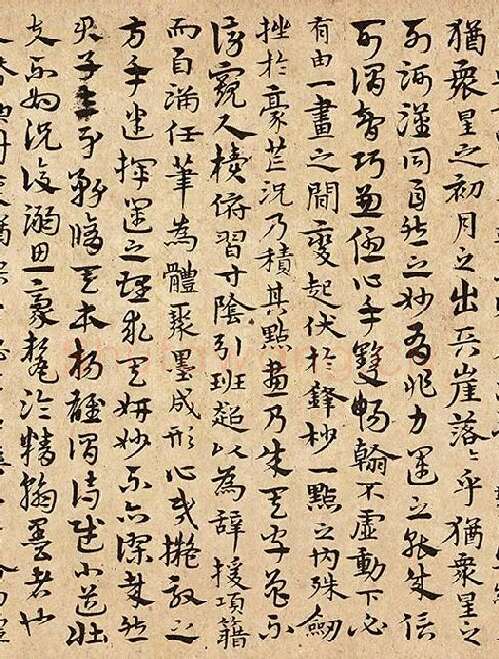 猶眾星之初月之出天崖落々乎猶眾星之
列河漢同自然之妙有非力運之能成信
可謂智巧兼優心手雙暢翰不虛動下必
有由一畫之間變起伏於鋒杪一點之內殊衄
挫於豪芒況乃積其點畫乃成其字曾不
傍窺尺牘俯習寸陰引班超以為辭援項籍
而自滿任筆為體聚墨成形心昏擬效之
方手迷揮運之理求其妍妙不亦謬哉然
君子立身務脩其本楊雄謂詩賦小道壯
夫不為況復溺思豪氂淪精翰墨者也